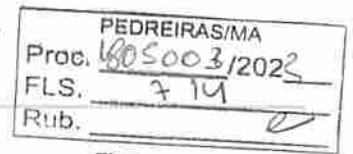 PEDREIRAS/MA
Proc. 1805003/2023
FLS. 714
Rub.